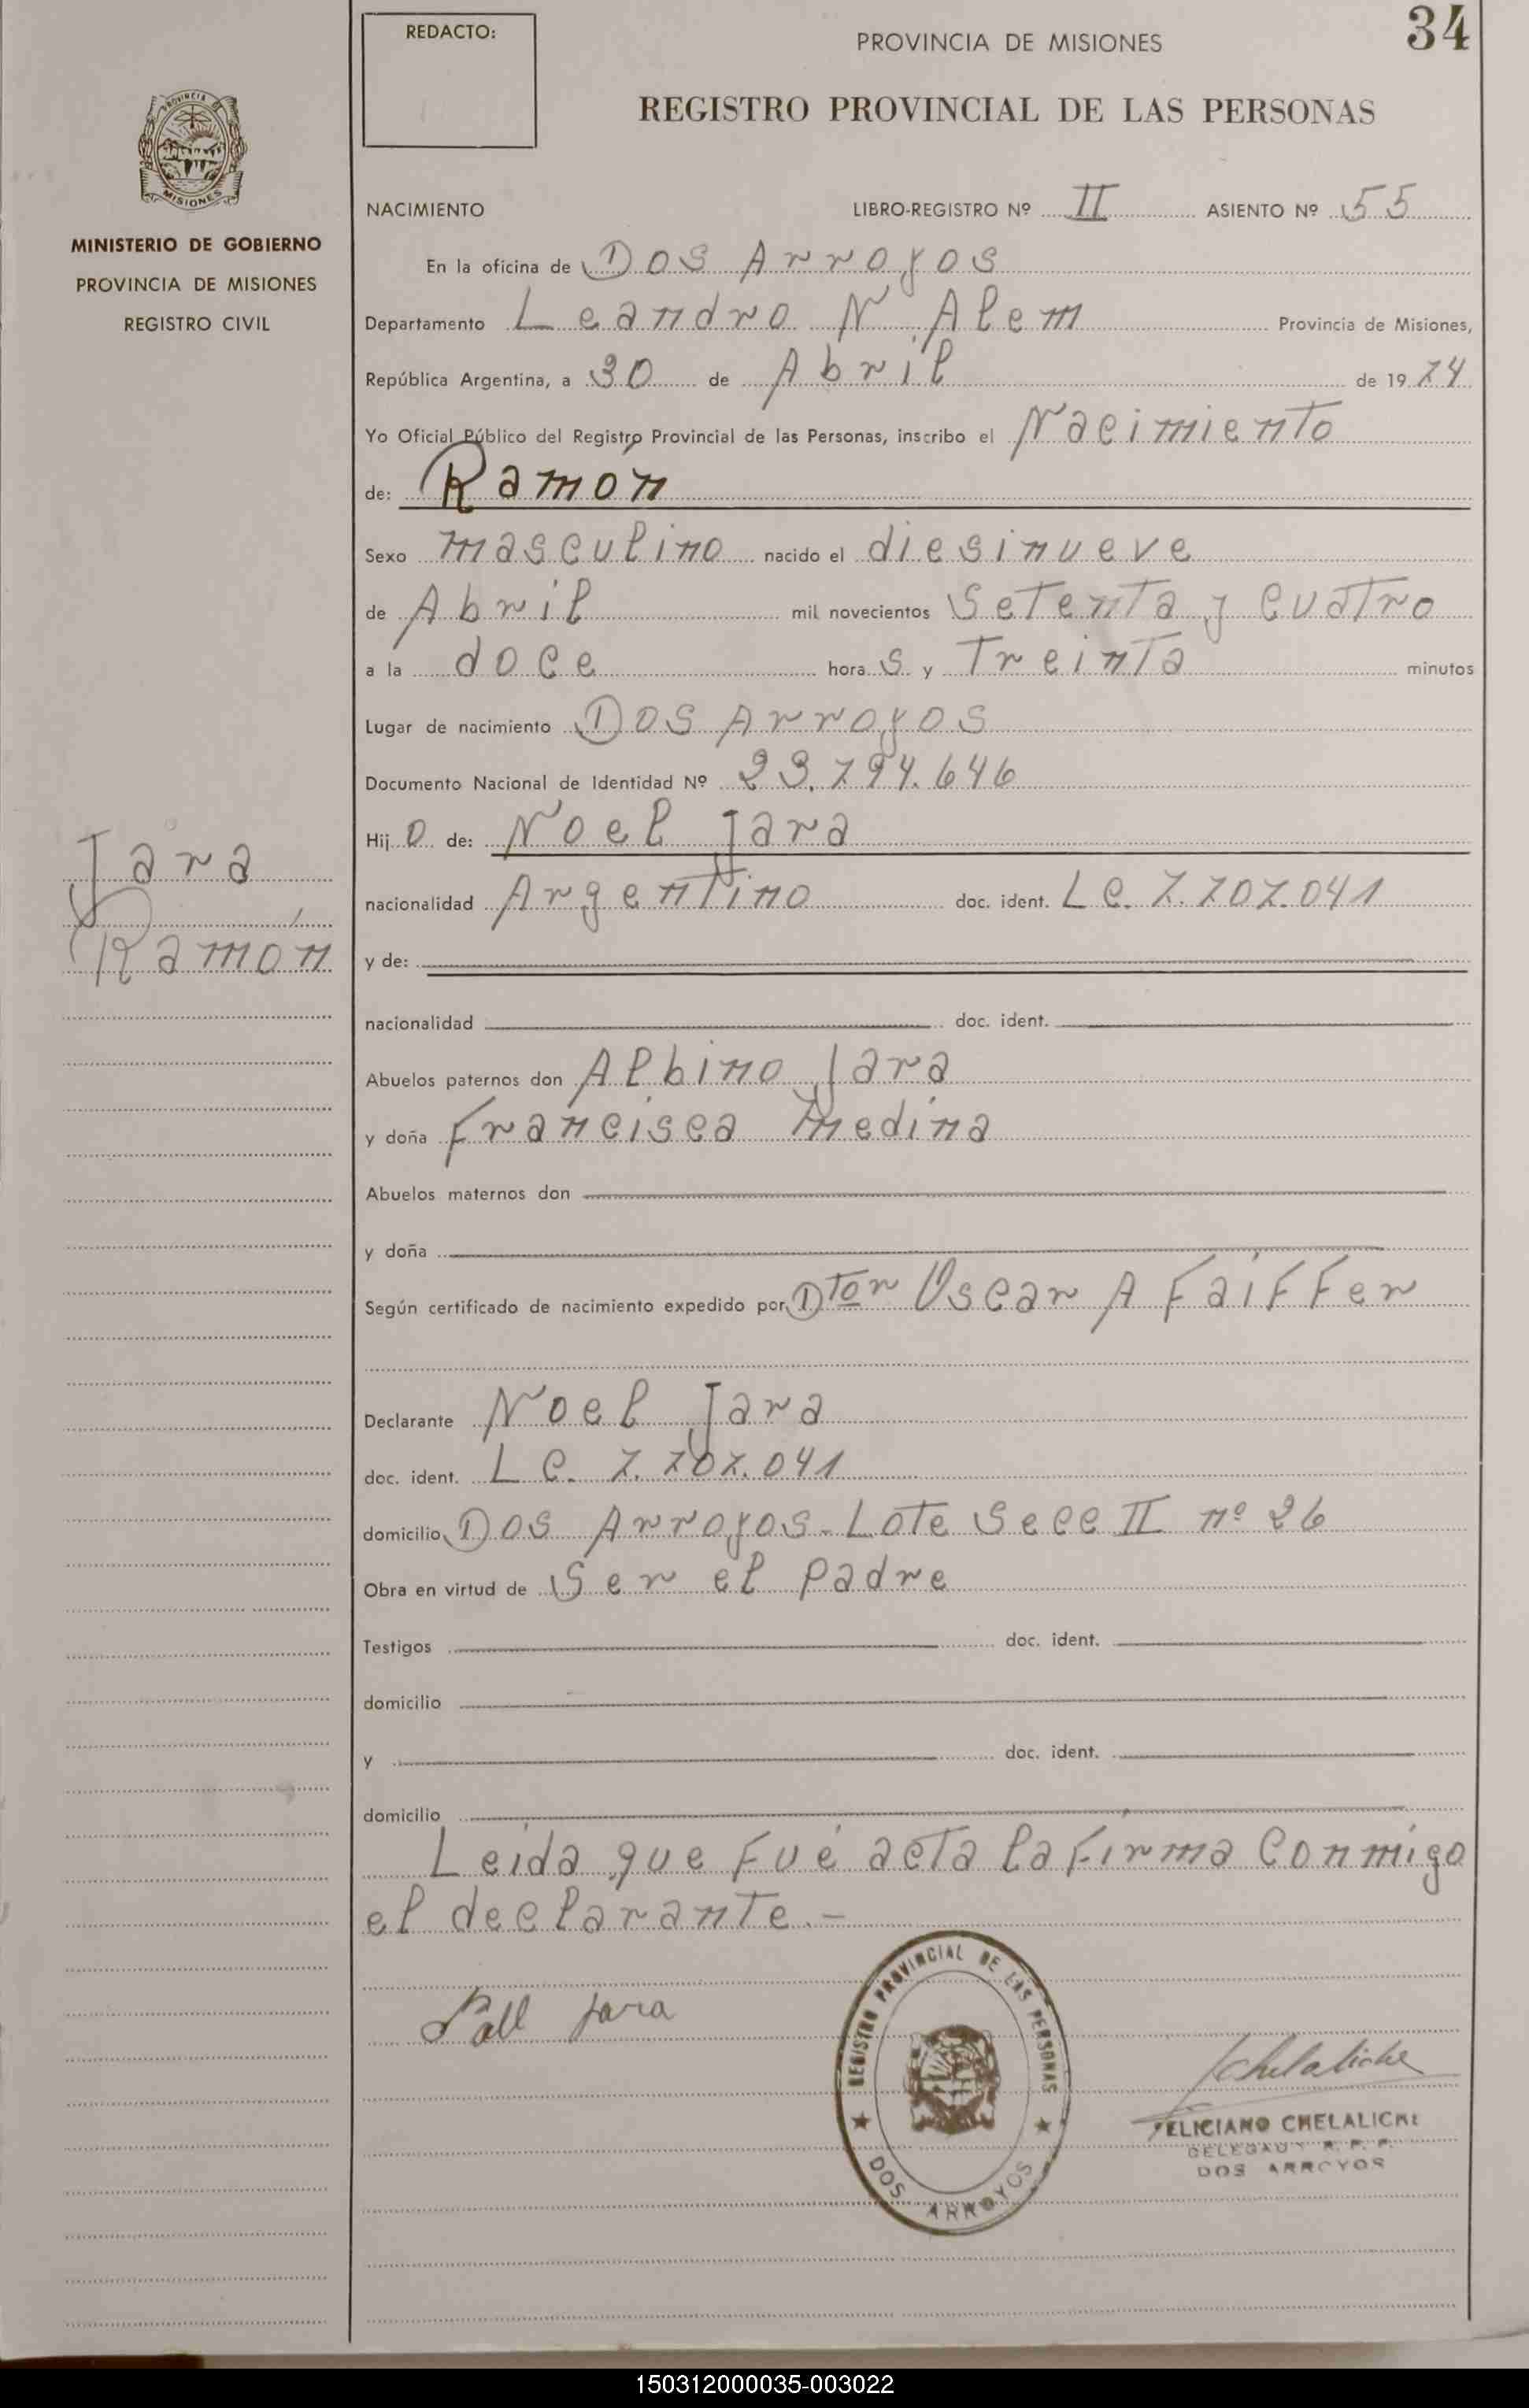 REDACTO:
PROVINCIA DE MISIONES
34
REGISTRO PROVINCIAL DE LAS PERSONAS
PROVINCIA DE
MISIONES
MINISTERIO DE GOBIERNO
PROVINCIA DE MISIONES
REGISTRO CIVIL
NACIMIENTO LIBRO-REGISTRO Nº II ASIENTO Nº 55
En la oficina de Dos Arroyos
Departamento Leandro N Alem Provincia de Misiones,
República Argentina, a 30 de Abril de 1974
Yo Oficial Público del Registro Provincial de las Personas, inscribo el Nacimiento
de: Ramón
Sexo masculino nacido el diesinueve
de Abril mil novecientos setenta y cuatro
a la doce hora s y Treinta minutos
Lugar de nacimiento Dos Arroyos
Documento Nacional de Identidad Nº 23.794.646
Hijo de: Noel Jara
nacionalidad Argentino doc. ident. L C. 7.707.041
Jara
Ramón
y de:
nacionalidad doc. ident.
Abuelos paternos don Albino Jara
y doña Francisca Medina
Abuelos maternos don
y doña
Según certificado de nacimiento expedido por Dtor Oscar A Faiffer
Declarante Noel Jara
doc. ident. L C. 7.707.041
domicilio Dos Arroyos - Lote Secc II nº 26
Obra en virtud de Ser el padre
Testigos doc. ident.
domicilio
y doc. ident.
domicilio
Leida que fué acta la firma conmigo
el declarante.-
Jara
REGISTRO PROVINCIAL DE LAS PERSONAS
DOS ARROYOS
Chelaliche
FELICIANO CHELALICHE
DELEGADO R. P. P.
DOS ARROYOS
150312000035-003022